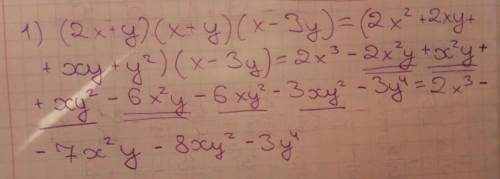 1) (2x+y)(x+y)(x-3y)=(2x²+2xy+
+xy+y²)(x-3y)=2x³-2x²y+x²y+
+xy²-6x²y-6xy²-3xy²-3y⁴=2x³-
-7x²y-8xy²-3y⁴